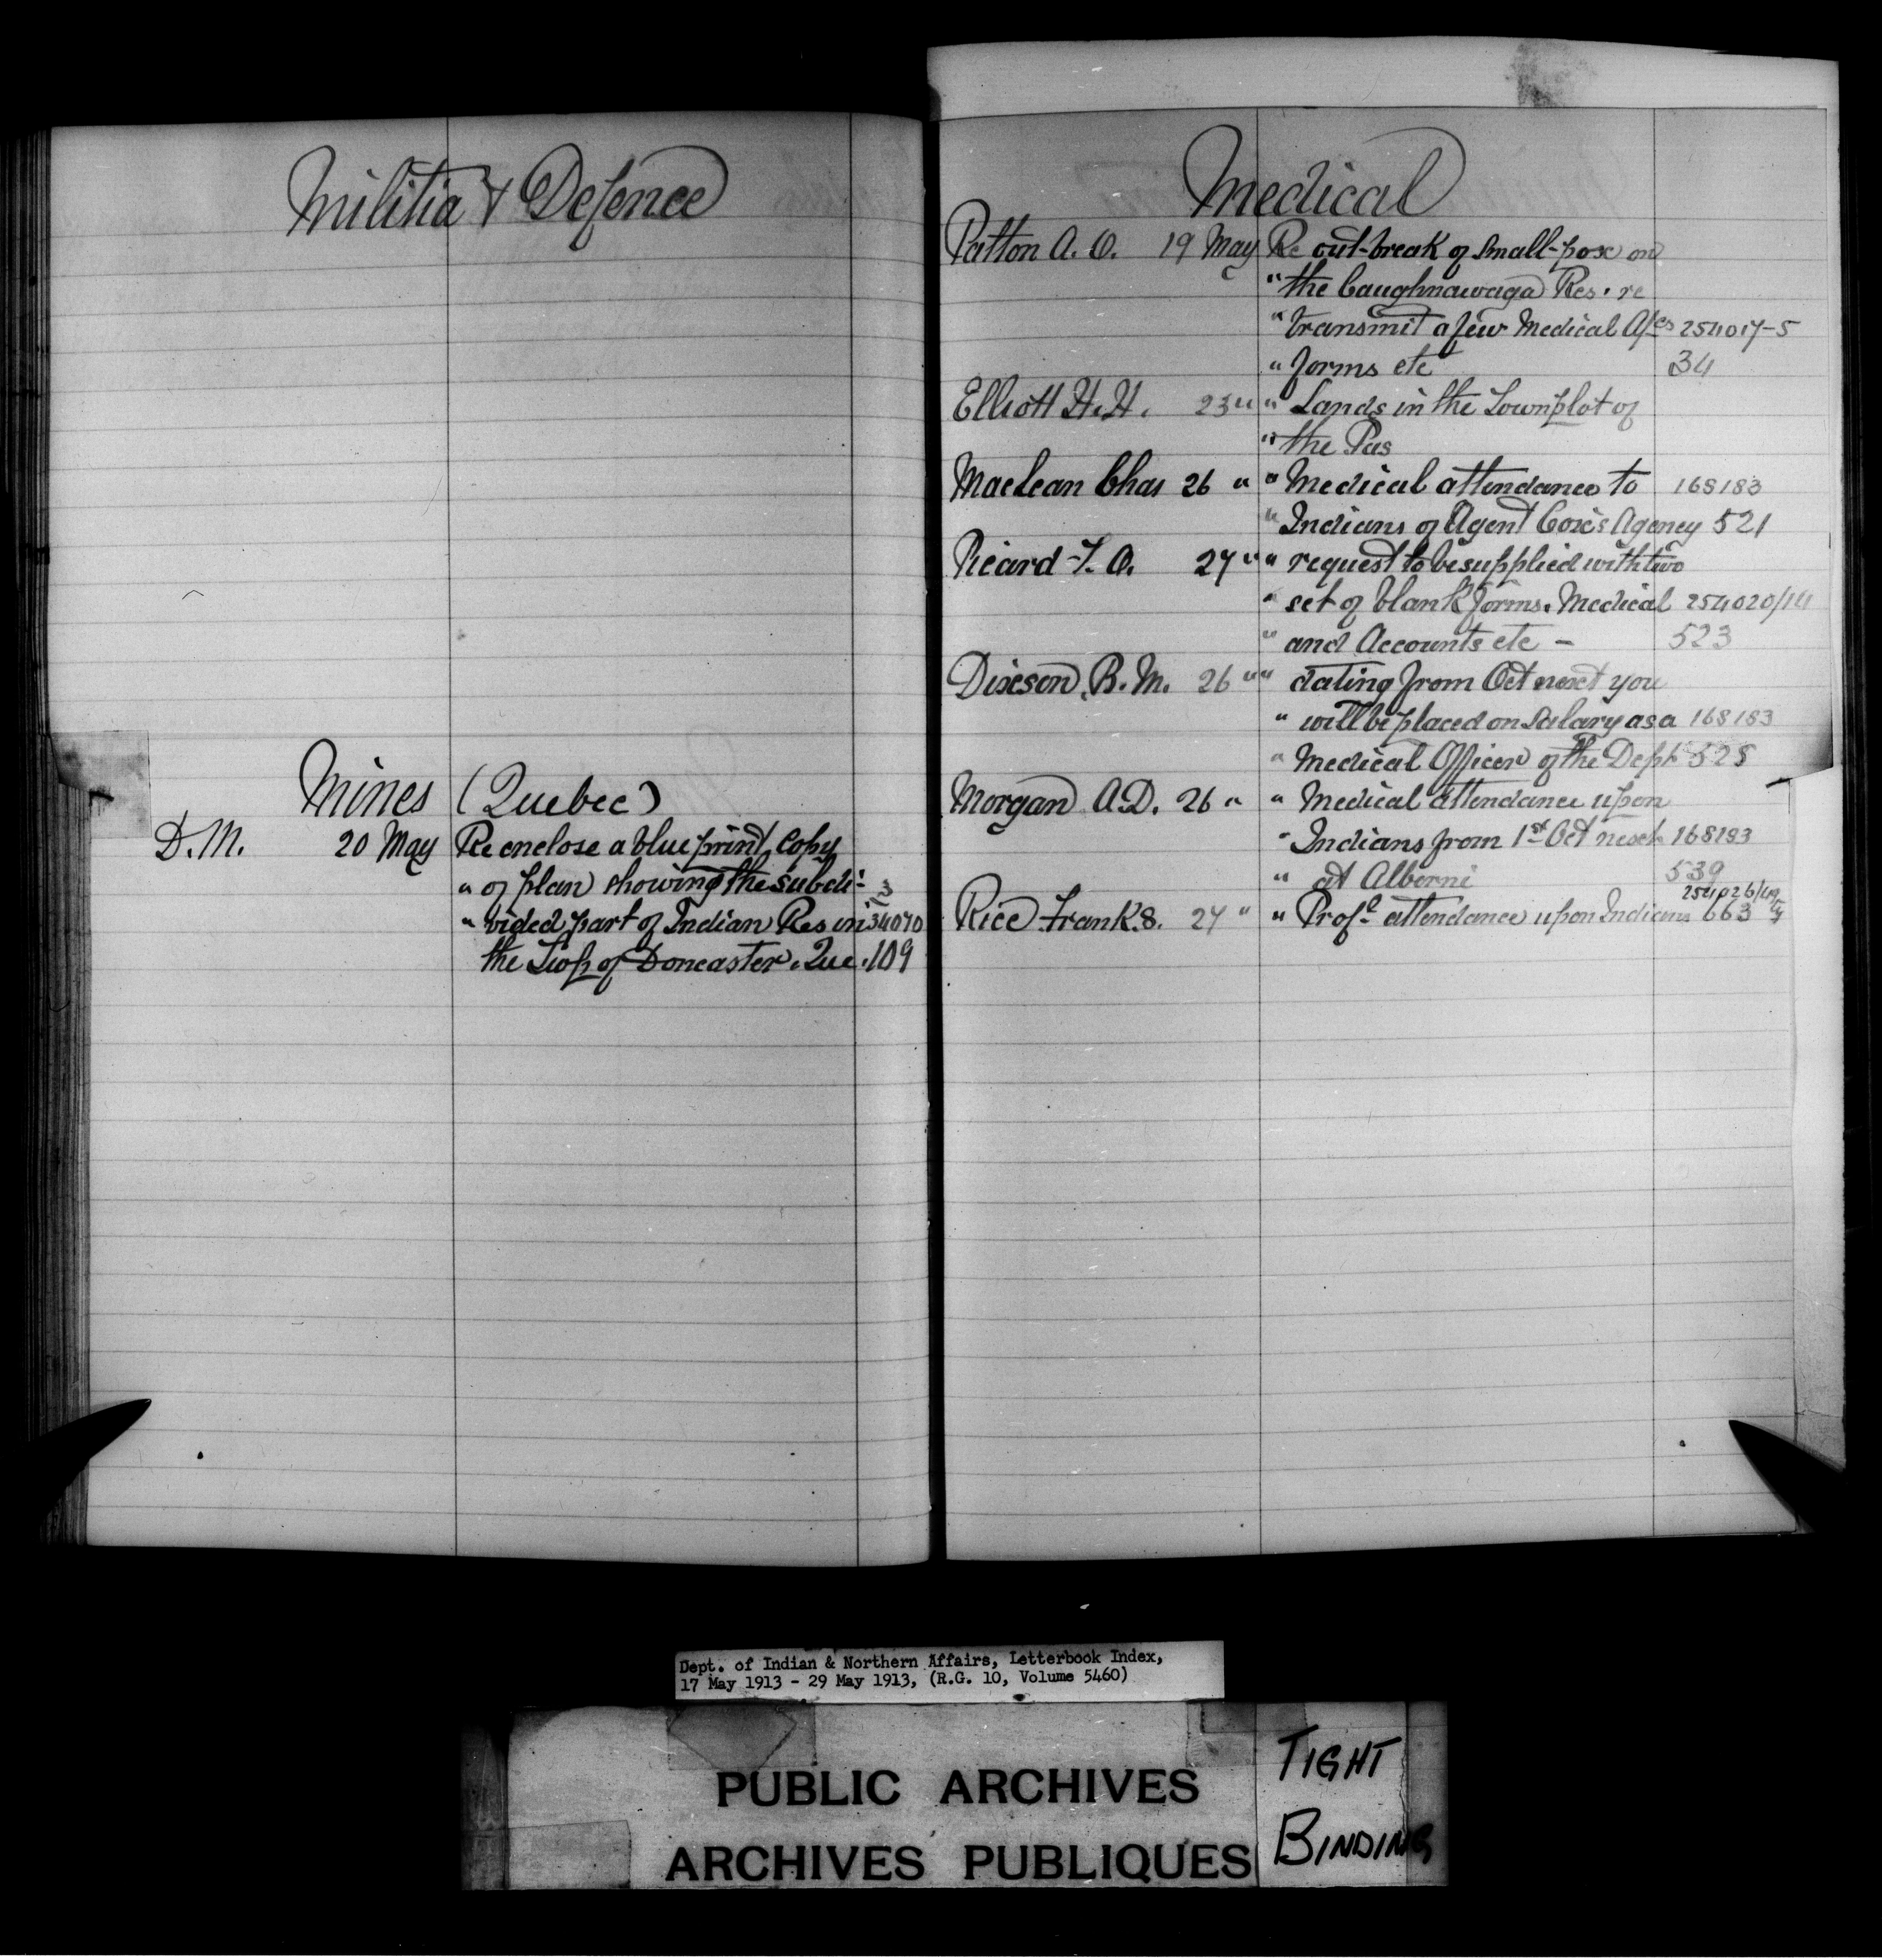 Militia & Defence
Mines (Quebec)
D.M. 20 May Re enclose a blue print, Copy
" of plan showing the subdi-
" vided part of Indian Res in 34070
the Twp of Doncaster. Que. 109
Medical
Patton A. O. 19 May Re out-break of small-pox on
" the Caughnawaga Res. re
" transmit a few Medical 254017-5
" forms etc 34
Elliott H. H. 23 " " Lands in the Townplot of
" the Pas
Maclean Chas 26 " " Medical attendance to 168183
" Indians of Agent Cox's Agency 521
Ricard T. O. 27 " " request to be supplied with two
" set of blank forms. Medical 254020/14
" and Accounts etc - 523
Dixson, B. M. 26 " " dating from Oct next you
" will be placed on Salary as a 168183
" Medical Officer of the Dept 525
Morgan A.D. 26 " " Medical attendance upon
" Indians from 1st Oct next 168183
" at Alberni 539
Rice Frank. S. 27 " " Profl attendance upon Indians 663
Dept. of Indian & Northern Affairs, Letterbook Index,
17 May 1913 - 29 May 1913, (R.G. 10, Volume 5460)
PUBLIC ARCHIVES
ARCHIVES PUBLIQUES
TIGHT
BINDING